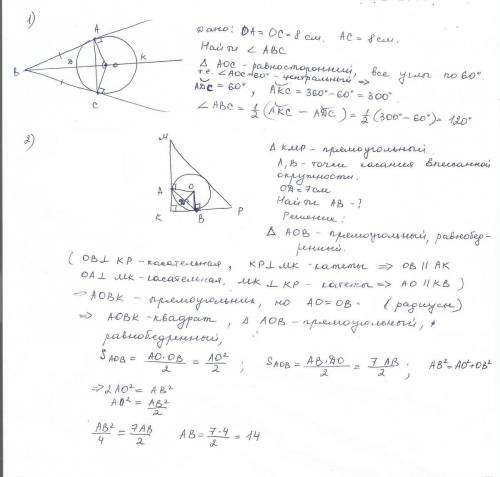 1)
A
B
D
O
K
C
Дано: OA = OC = 8 см. AC = 8 см.
Найти ∠ ABC
△ AOC - равносторонний, все углы по 60°.
т.е. ∠AOC = 60° - центральный ⇒
ADC = 60°, AKC = 360° - 60° = 300°
∠ ABC = 1/2 (AKC - ADC) = 1/2 (300° - 60°) = 120°
2)
M
A
O
K
B
P
△ KMP - прямоугольный.
A, B - точки касания вписанной
окружности.
OA = 7 см
Найти AB - ?
Решение:
△ AOB - прямоугольный, равнобед-
ренный.
( OB ⊥ KP - касательная, KP ⊥ MK - катеты ⇒ OB ∥ AK
OA ⊥ MK - касательная, MK ⊥ KP - катеты ⇒ AO ∥ KB )
⇒ AOBK - прямоугольник, но AO = OB - (радиусы)
⇒ AOBK - квадрат, △ AOB - прямоугольный,
равнобедренный,
S AOB = AO·OB/2 = AO²/2 ; S AOB = AB·DO/2 = 7 AB/2 ; AB² = AO² + OB²
⇒ 2AO² = AB²
AO² = AB²/2
AB²/4 = 7AB/2 AB = 7·4/2 = 14